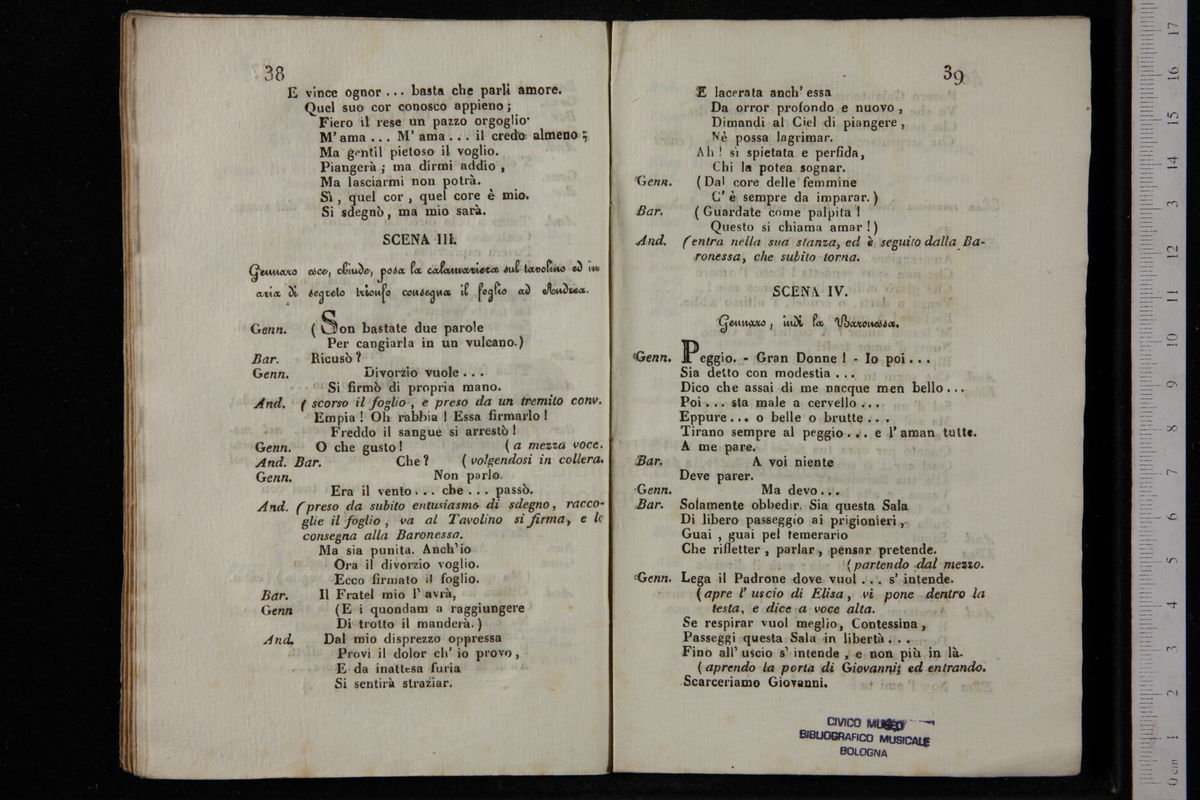 38
E vince ognor ... basta che parli amore.
Quel suo cor conosco appieno;
Fiero il rese un pazzo orgoglio
M' ama ... M' ama ... il credo almeno;
Ma gentil pietoso il voglio.
Piangerà; ma dirmi addio,
Ma lasciarmi non potrà.
Sì, quel cor, quel core è mio.
Si sdegnò, ma mio sarà.
SCENA III.
Gennaro esce, chiude, posa la calamariera sul tavolino ed in
aria di segreto trionfo consegna il foglio ad Andrea.
Genn. (Son bastate due parole
Per cangiarla in un vulcano.)
Bar. Ricusò?
Genn. Divorzio vuole...
Si firmò di propria mano.
And. (scorso il foglio, e preso da un tremito conv.
Empia! Oh rabbia! Essa firmarlo!
Freddo il sangue si arrestò!
Genn. O che gusto! (a mezza voce.
And. Bar. Che? (volgendosi in collera.
Genn. Non parlo.
Era il vento... che... passò.
And. (preso da subito entusiasmo di sdegno, racco-
glie il foglio, va al Tavolino si firma, e lo
consegna alla Baronessa.
Ma sia punita. Anch' io
Ora il divorzio voglio.
Ecco firmato il foglio.
Bar. Il Fratel mio l' avrà,
Genn (E i quondam a raggiungere
Di trotto il manderà.)
And. Dal mio disprezzo oppressa
Provi il dolor ch' io provo,
E da inattesa furia
Si sentirà straziar.
39
E lacerata anch' essa
Da orror profondo e nuovo,
Dimandi al Ciel di piangere,
Nè possa lagrimar.
Ah! sì spietata e perfida,
Chi la potea sognar.
Genn. (Dal core delle femmine
C' è sempre da imparar.)
Bar. (Guardate come palpita!
Questo si chiama amar!)
And. (entra nella sua stanza, ed è seguito dalla Ba-
ronessa, che subito torna.
SCENA IV.
Gennaro, indi la Baronessa.
Genn. Peggio. - Gran Donne! - Io poi...
Sia detto con modestia...
Dico che assai di me nacque men bello...
Poi... sta male a cervello...
Eppure... o belle o brutte...
Tirano sempre al peggio... e l' aman tutte.
A me pare.
Bar. A voi niente
Deve parer.
Genn. Ma devo...
Bar. Solamente obbedir. Sia questa Sala
Di libero passeggio ai prigionieri,
Guai, guai pel temerario
Che rifletter, parlar, pensar pretende.
(partendo dal mezzo.
Genn. Lega il Padrone dove vuol... s' intende.
(apre l' uscio di Elisa, vi pone dentro la
testa, e dice a voce alta.
Se respirar vuol meglio, Contessina,
Passeggi questa Sala in libertà...
Fino all' uscio s' intende, e non più in là.
(aprendo la porta di Giovanni; ed entrando.
Scarceriamo Giovanni.
CIVICO MUSEO
BIBLIOGRAFICO MUSICALE
BOLOGNA
0 cm 1 2 3 4 5 6 7 8 9 10 11 12 13 14 15 16 17